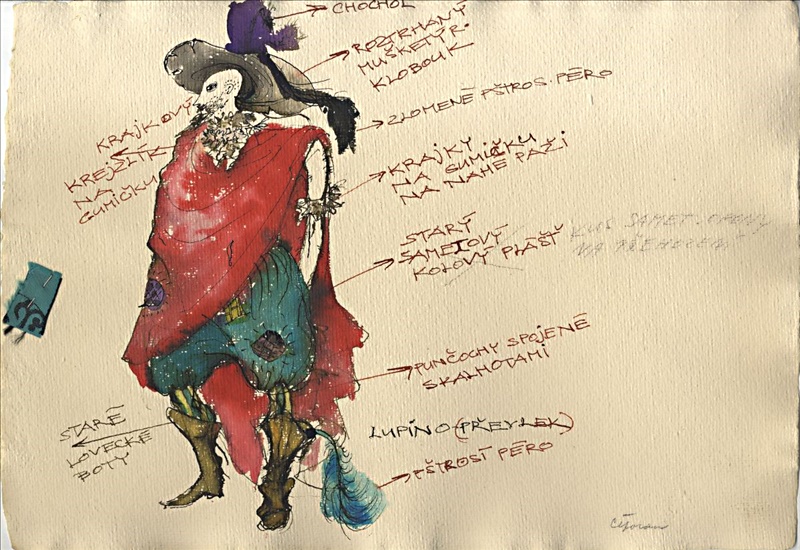 CHOCHOL
ROZTRHANÝ
MUŠKETÝR.
KLOBOUK
ZLOMENÉ PŠTROS. PÉRO
KRAJKOVÝ
KREJZLÍK
NA
GUMIČKU
KRAJKY
NA GUMIČKU
NA NAHÉ PAŽI
STARÝ
SAMETOVÝ
KOLOVÝ PLÁŠŤ
KUS SAMET. OPONY
NA PŘEHOZENÍ
PUNČOCHY SPOJENÉ
SKALHOTAMI
STARÉ
LOVECKÉ
BOTY
LUPINO (PŘEVLEK)
PŠTROSÍ PÉRO